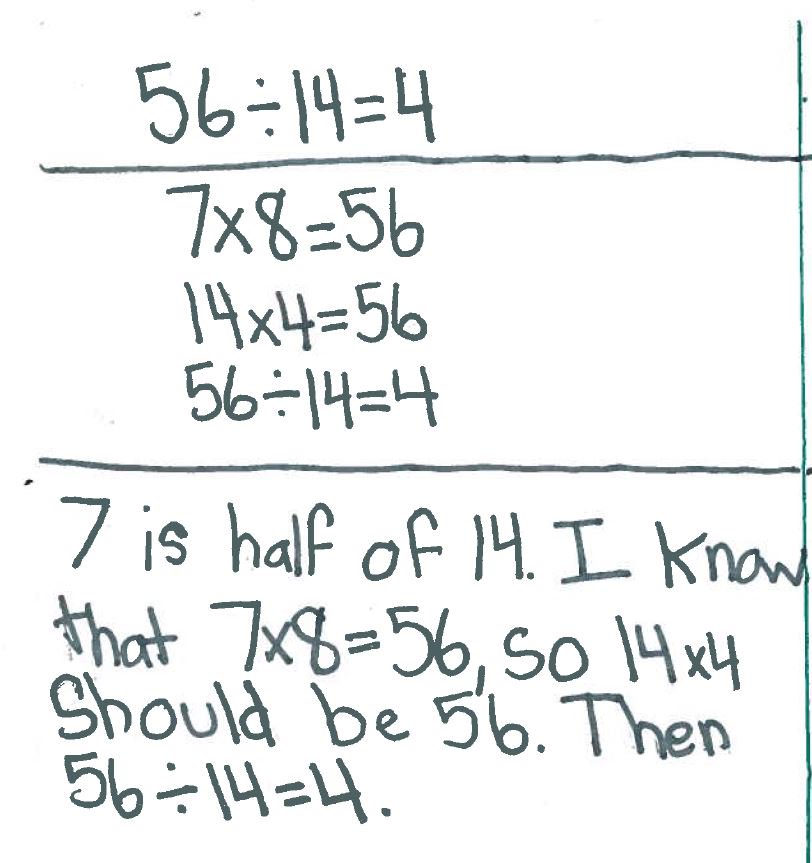 56÷14=4
7×8=56
14×4=56
56÷14=4
7 is half of 14. I know
that 7×8=56, so 14×4
Should be 56. Then
56÷14=4.